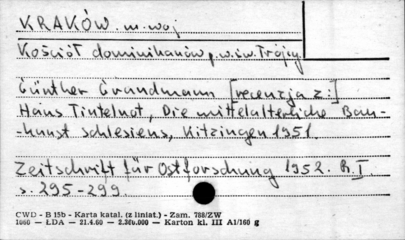 KRAKÓW. m. woj
Kościół dominikanów, p.w. św. Trójcy
Günther Grundmann [recenzja z:]
Hans Tintelnot, Die mittelalterliche Bau-
-kunst Schlesiens, Kitzingen 1951.
Zeitschrift für Ostforschung 1952. R. I.
s. 295-299.
CWD - B 15b - Karta katal. (z liniat.) - Zam. 788/ZW
1066 — ŁDA — 21.4.60 — 2.300.000 — Karton kl. III A1/160 g